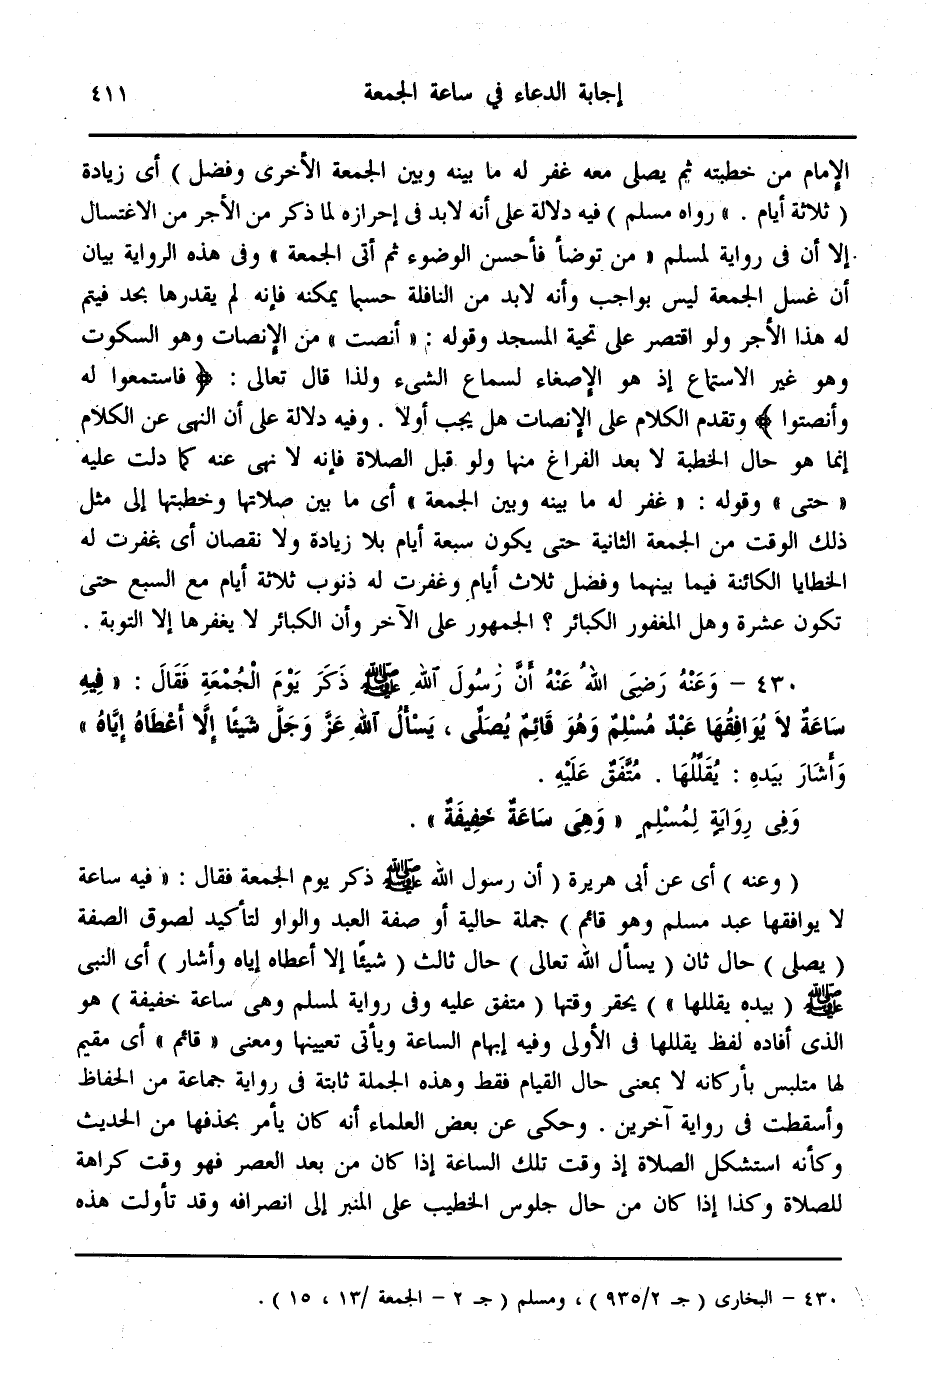 إجابة الدعاء في ساعة الجمعة ٤١١
الإمام من خطبته ثم يصلى معه غفر له ما بينه وبين الجمعة الأخرى وفضل ) أى زيادة
( ثلاثة أيام . » رواه مسلم ) فيه دلالة على أنه لابد فى إحرازه لما ذكر من الأجر من الاغتسال
إلا أن فى رواية لمسلم « من توضأ فأحسن الوضوء ثم أتى الجمعة » وفى هذه الرواية بيان
أن غسل الجمعة ليس بواجب وأنه لابد من النافلة حسبما يمكنه فإنه لم يقدرها بحد فيتم
له هذا الأجر ولو اقتصر على تحية المسجد وقوله : « أنصت » من الإنصات وهو السكوت
وهو غير الاستماع إذ هو الإصغاء لسماع الشىء ولذا قال تعالى : ﴿ فاستمعوا له
وأنصتوا ﴾ وتقدم الكلام على الإنصات هل يجب أولا . وفيه دلالة على أن النهى عن الكلام
إنما هو حال الخطبة لا بعد الفراغ منها ولو قبل الصلاة فإنه لا نهى عنه كما دلت عليه
« حتى » وقوله : « غفر له ما بينه وبين الجمعة » أى ما بين صلاتها وخطبتها إلى مثل
ذلك الوقت من الجمعة الثانية حتى يكون سبعة أيام بلا زيادة ولا نقصان أى غفرت له
الخطايا الكائنة فيما بينهما وفضل ثلاث أيام وغفرت له ذنوب ثلاثة أيام مع السبع حتى
تكون عشرة وهل المغفور الكبائر ؟ الجمهور على الآخر وأن الكبائر لا يغفرها إلا التوبة .
٤٣٠ – وَعَنْهُ رَضِىَ اللهُ عَنْهُ أَنَّ رَسُولَ اللهِ ﷺ ذَكَرَ يَوْمَ الْجُمْعَةِ فَقَالَ : « فِيهِ
سَاعَةٌ لاَ يُوَافِقُهَا عَبْدٌ مُسْلِمٌ وَهُوَ قَائِمٌ يُصَلِّى ، يَسْأَلُ اللهِ عَزَّ وَجَلَّ شَيْئًا إِلَّا أَعْطَاهُ إِيَّاهُ »
وَأَشَارَ بِيَدِهِ : يُقَلِّلُهَا . مُتَّفَقٌ عَلَيْهِ .
وَفِى رِوَايَةٍ لِمُسْلِمٍ « وَهِىَ سَاعَةٌ خَفِيفَةٌ » .
( وعنه ) أى عن أبى هريرة ( أن رسول الله ﷺ ذكر يوم الجمعة فقال : « فيه ساعة
لا يوافقها عبد مسلم وهو قائم ) جملة حالية أو صفة العبد والواو لتأكيد لصوق الصفة
( يصلى ) حال ثان ( يسأل الله تعالى ) حال ثالث ( شيئًا إلا أعطاه إياه وأشار ) أى النبى
ﷺ ( بيده يقللها » ) يحقر وقتها ( متفق عليه وفى رواية لمسلم وهى ساعة خفيفة ) هو
الذى أفاده لفظ يقللها فى الأولى وفيه إبهام الساعة ويأتى تعيينها ومعنى « قائم » أى مقيم
لها متلبس بأركانه لا بمعنى حال القيام فقط وهذه الجملة ثابتة فى رواية جماعة من الحفاظ
وأسقطت فى رواية آخرين . وحكى عن بعض العلماء أنه كان يأمر بحذفها من الحديث
وكأنه استشكل الصلاة إذ وقت تلك الساعة إذا كان من بعد العصر فهو وقت كراهة
للصلاة وكذا إذا كان من حال جلوس الخطيب على المنبر إلى انصرافه وقد تأولت هذه
٤٣٠ – البخارى ( جـ ٢/ ٩٣٥ ) ، ومسلم ( جـ ٢ – الجمعة / ١٣ ، ١٥ ) .